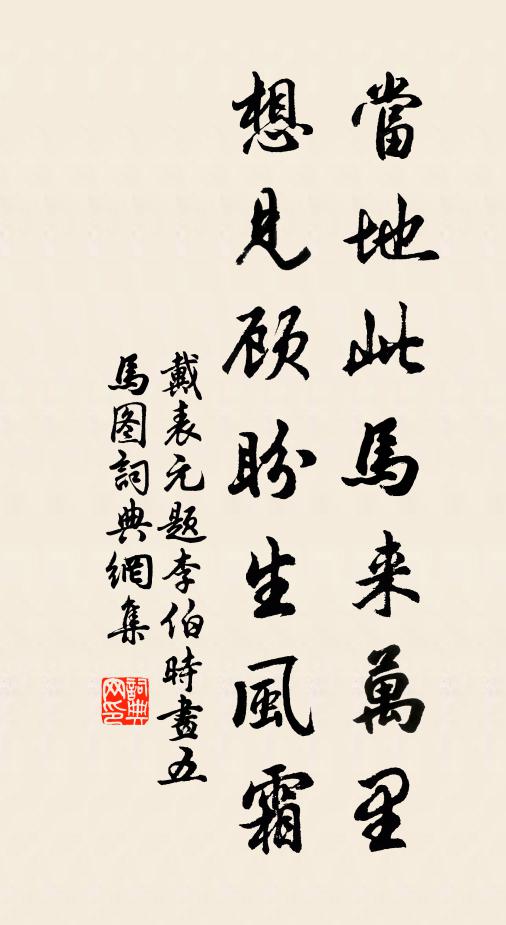 當地此馬来萬里
想見顾盼生風霜
戴表元题李伯時畫五
馬图詞典網集
詞典网印